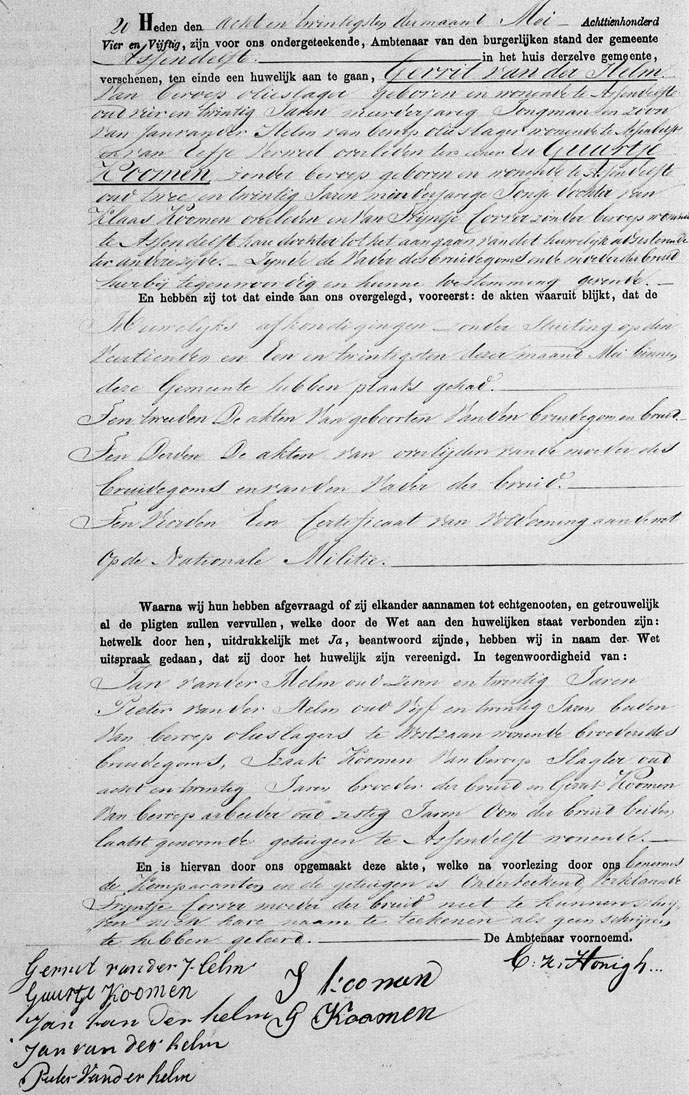 20 Heden den acht en twintigsten der maand Mei Achttienhonderd
Vier en Vijftig, zijn voor ons ondergeteekende, Ambtenaar van den burgerlijken stand der gemeente
Assendelft. in het huis derzelve gemeente,
verschenen, ten einde een huwelijk aan te gaan, Gerrit van der Helm.
Van beroep olieslager geboren en wonende te Assendelft
oud vier en twintig Jaren meerderjarig Jongman en zoon
van Jan van der Helm van beroep olieslager wonende te Assendelft
en van Eefje overleden ter eener En Guurtje
Koomen zonder beroep geboren en wonende te Assendelft
oud twee en twintig Jaren minderjarige Jonge dochter van
Klaas Koomen overleden en van Trijntje Correr zonder beroep wonende
te Assendelft hau dochter tot het aangaan van dit huwelijk adsisterende
ter andere zijde. – Zynde de Vader des bruidegoms en de moeder der bruid
hierbij tegenwoordig en hunne toestemming gevende. –
En hebben zij tot dat einde aan ons overgelegd, vooreerst: de akten waaruit blijkt, dat de
Huwelijks afkondigingen zonder stuiting op den
Veertienden en Een en twintigsten dezer maand Mei binnen
deze Gemeente hebben plaats gehad.
Ten tweeden De akten van geboorten van den bruidegom en bruid
Ten Derden De akten van overlijden van de moeder des
bruidegoms en van den Vader der bruid.
Ten Vierden Een Certificaat van voldoening aan de wet
op de Nationale Militie.
Waarna wij hun hebben afgevraagd of zij elkander aannamen tot echtgenooten, en getrouwelijk
al de pligten zullen vervullen, welke door de Wet aan den huwelijken staat verbonden zijn:
hetwelk door hen, uitdrukkelijk met Ja, beantwoord zijnde, hebben wij in naam der Wet
uitspraak gedaan, dat zij door het huwelijk zijn vereenigd. In tegenwoordigheid van:
Jan van der Helm oud zeven en twintig Jaren
Pieter van der Helm oud Vyf en twintig Jaren beiden
van beroep olieslagers te Westzaan wonende broeders des
bruidegoms, Izaak Koomen Van beroep Slagter oud
acht en twintig Jaren broeder der bruid en Gerrit Koomen
Van beroep arbeider oud zestig Jaren Oom der bruid beiden
laatst genoemde getuigen te Assendelft wonende. –
En is hiervan door ons opgemaakt deze akte, welke na voorlezing door ons benevens
de Komparanten en de getuigen is Onderteekend, Verklarende
Trijntje Correr moeder der bruid niet te kunnen schrij
ven noch hare naam te teekenen als geen schrijven
te hebben geleerd. De Ambtenaar voornoemd.
Gerrit van der Helm C: Z: Honigh...
Guurtje Koomen I koomen
Jan van der helm G Koomen
Jan van der helm
Pieter Van der helm